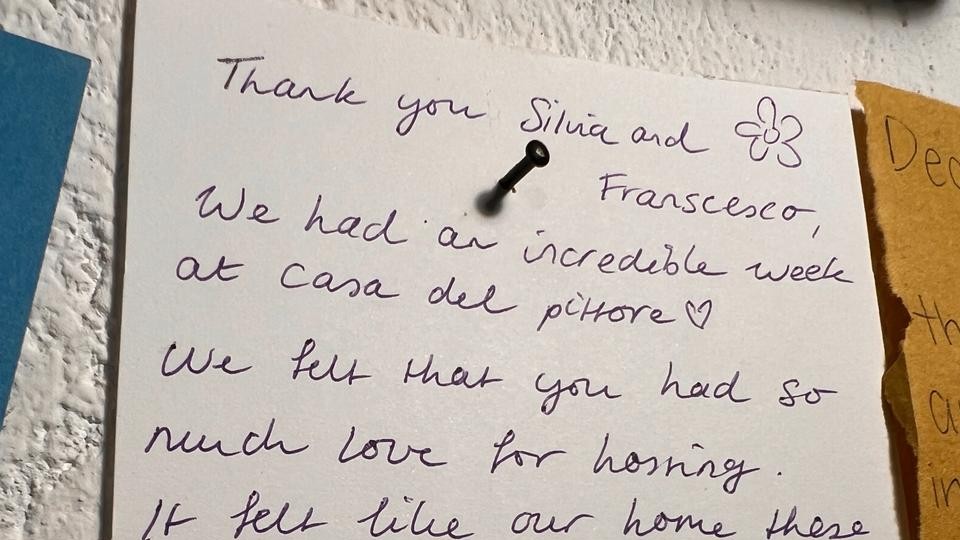 Thank you Silvia and
Franscesco,
We had an incredible week
at casa del pittore ♡
We felt that you had so
much love for hosting.
It felt like our home these
Dea
th
in